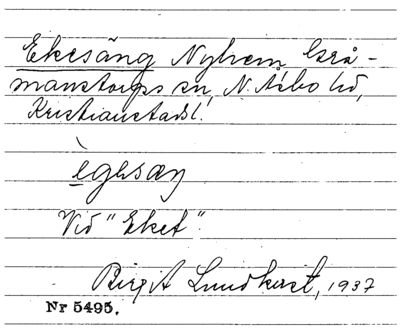 Ekesäng Nyhem Grå-
manstorps sn, N. Åsbo hd,
Kristianstads l.
ègəsæŋ
Vid "Eket".
Birgit Lundkvist, 1937
Nr 5495.